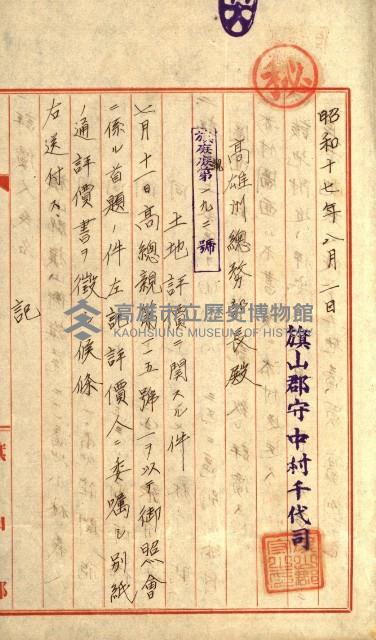 秘
昭和十七年八月一日
旗山郡守中村千代司
高雄州總務部長殿
旗庶庶第一九二號
土地評價ニ関スル件
七月十一日高總親第二五號ノ一ヲ以テ御照會
ニ係ル首題ノ件左記評價人ニ委嘱シ別紙
ノ通評價書ヲ徴シ候條
右送付ス
記
高雄市立歷史博物館
KAOHSIUNG MUSEUM OF HISTORY